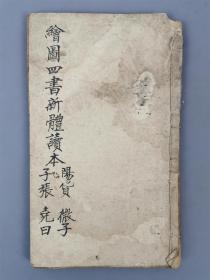 繪圖四書新體讀本
陽貨 微子
子張 堯曰